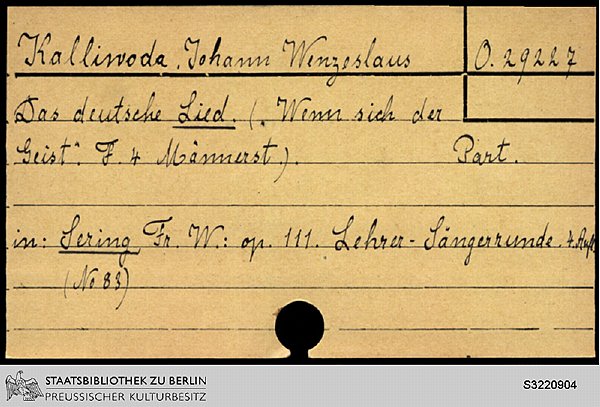 Kalliwoda, Johann Wenzeslaus O. 29227
Das deutsche Lied. („Wenn sich der
Geist“. F. 4 Männerst.). Part.
in: Sering, Fr. W.: op. 111. Lehrer-Sängerrunde. 4. Aufl.
(No 83)
STAATSBIBLIOTHEK ZU BERLIN
PREUSSISCHER KULTURBESITZ
S3220904